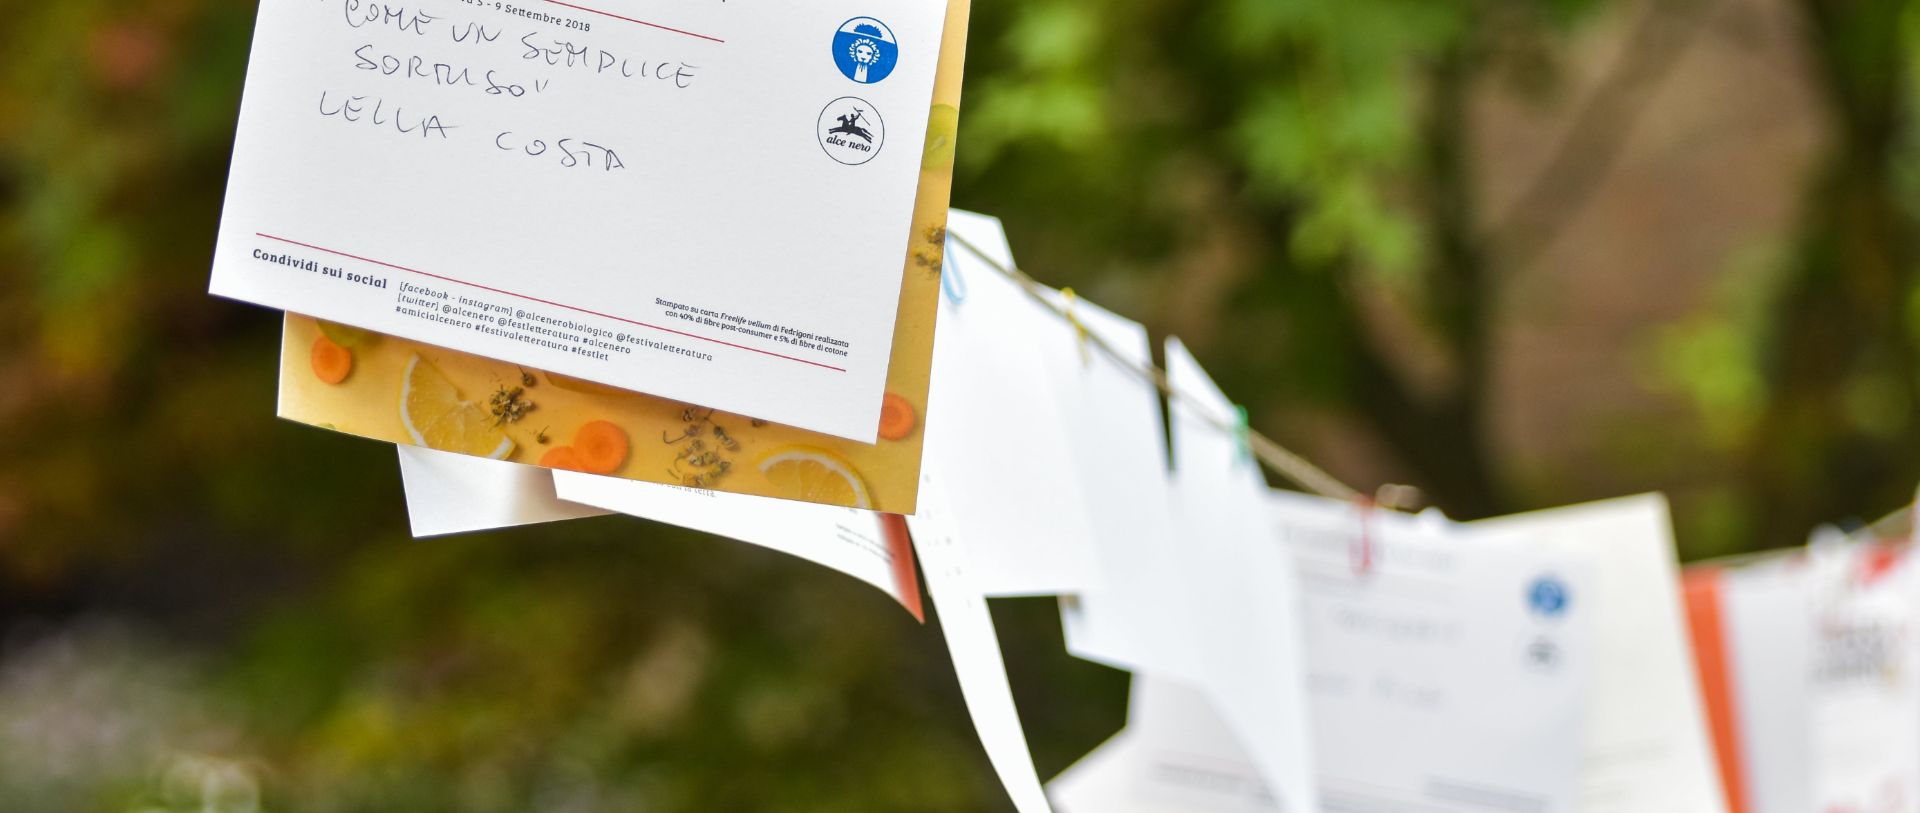 5 - 9 Settembre 2018
COME UN SEMPLICE
SORRISO"
LELLA COSTA
alce nero
Condividi sui social
[facebook - instagram] @alcenerobiologico @festivaletteratura
[twitter] @alcenero @festletteratura #alcenero
#amicialcenero #festivaletteratura #festlet
Stampato su carta Freelife vellum di Fedrigoni realizzata
con 40% di fibre post-consumer e 5% di fibre di cotone